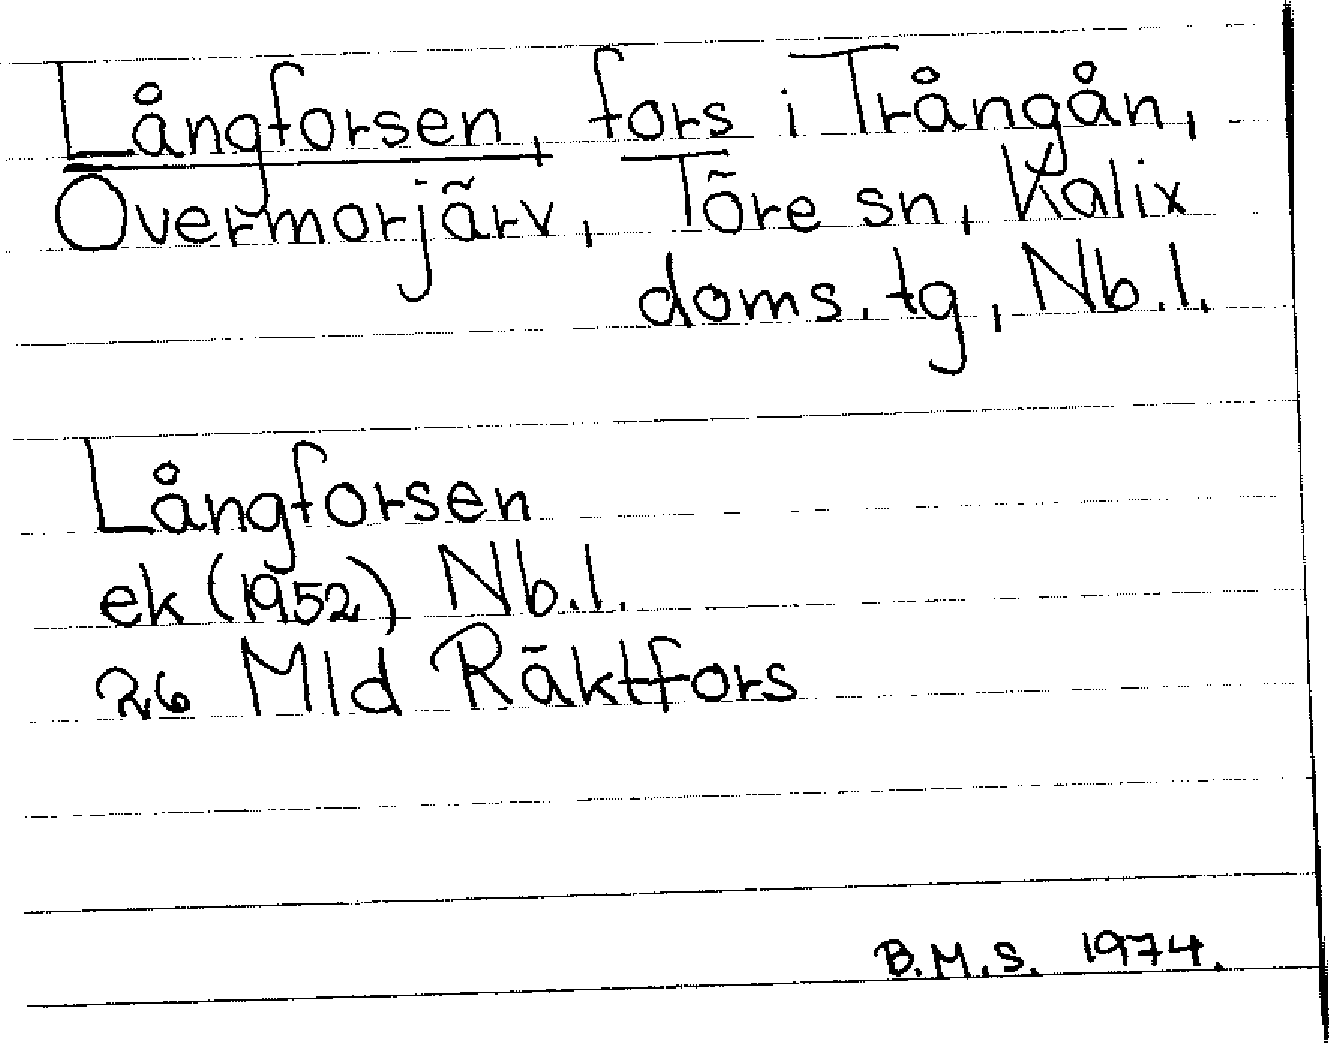 Långforsen, fors i Trångån,
Övermorjärv, Töre sn, Kalix
doms.tg, Nb.l.
Långforsen
ek (1952) Nb.l.
26 Mld Räktfors
B.M.S. 1974.